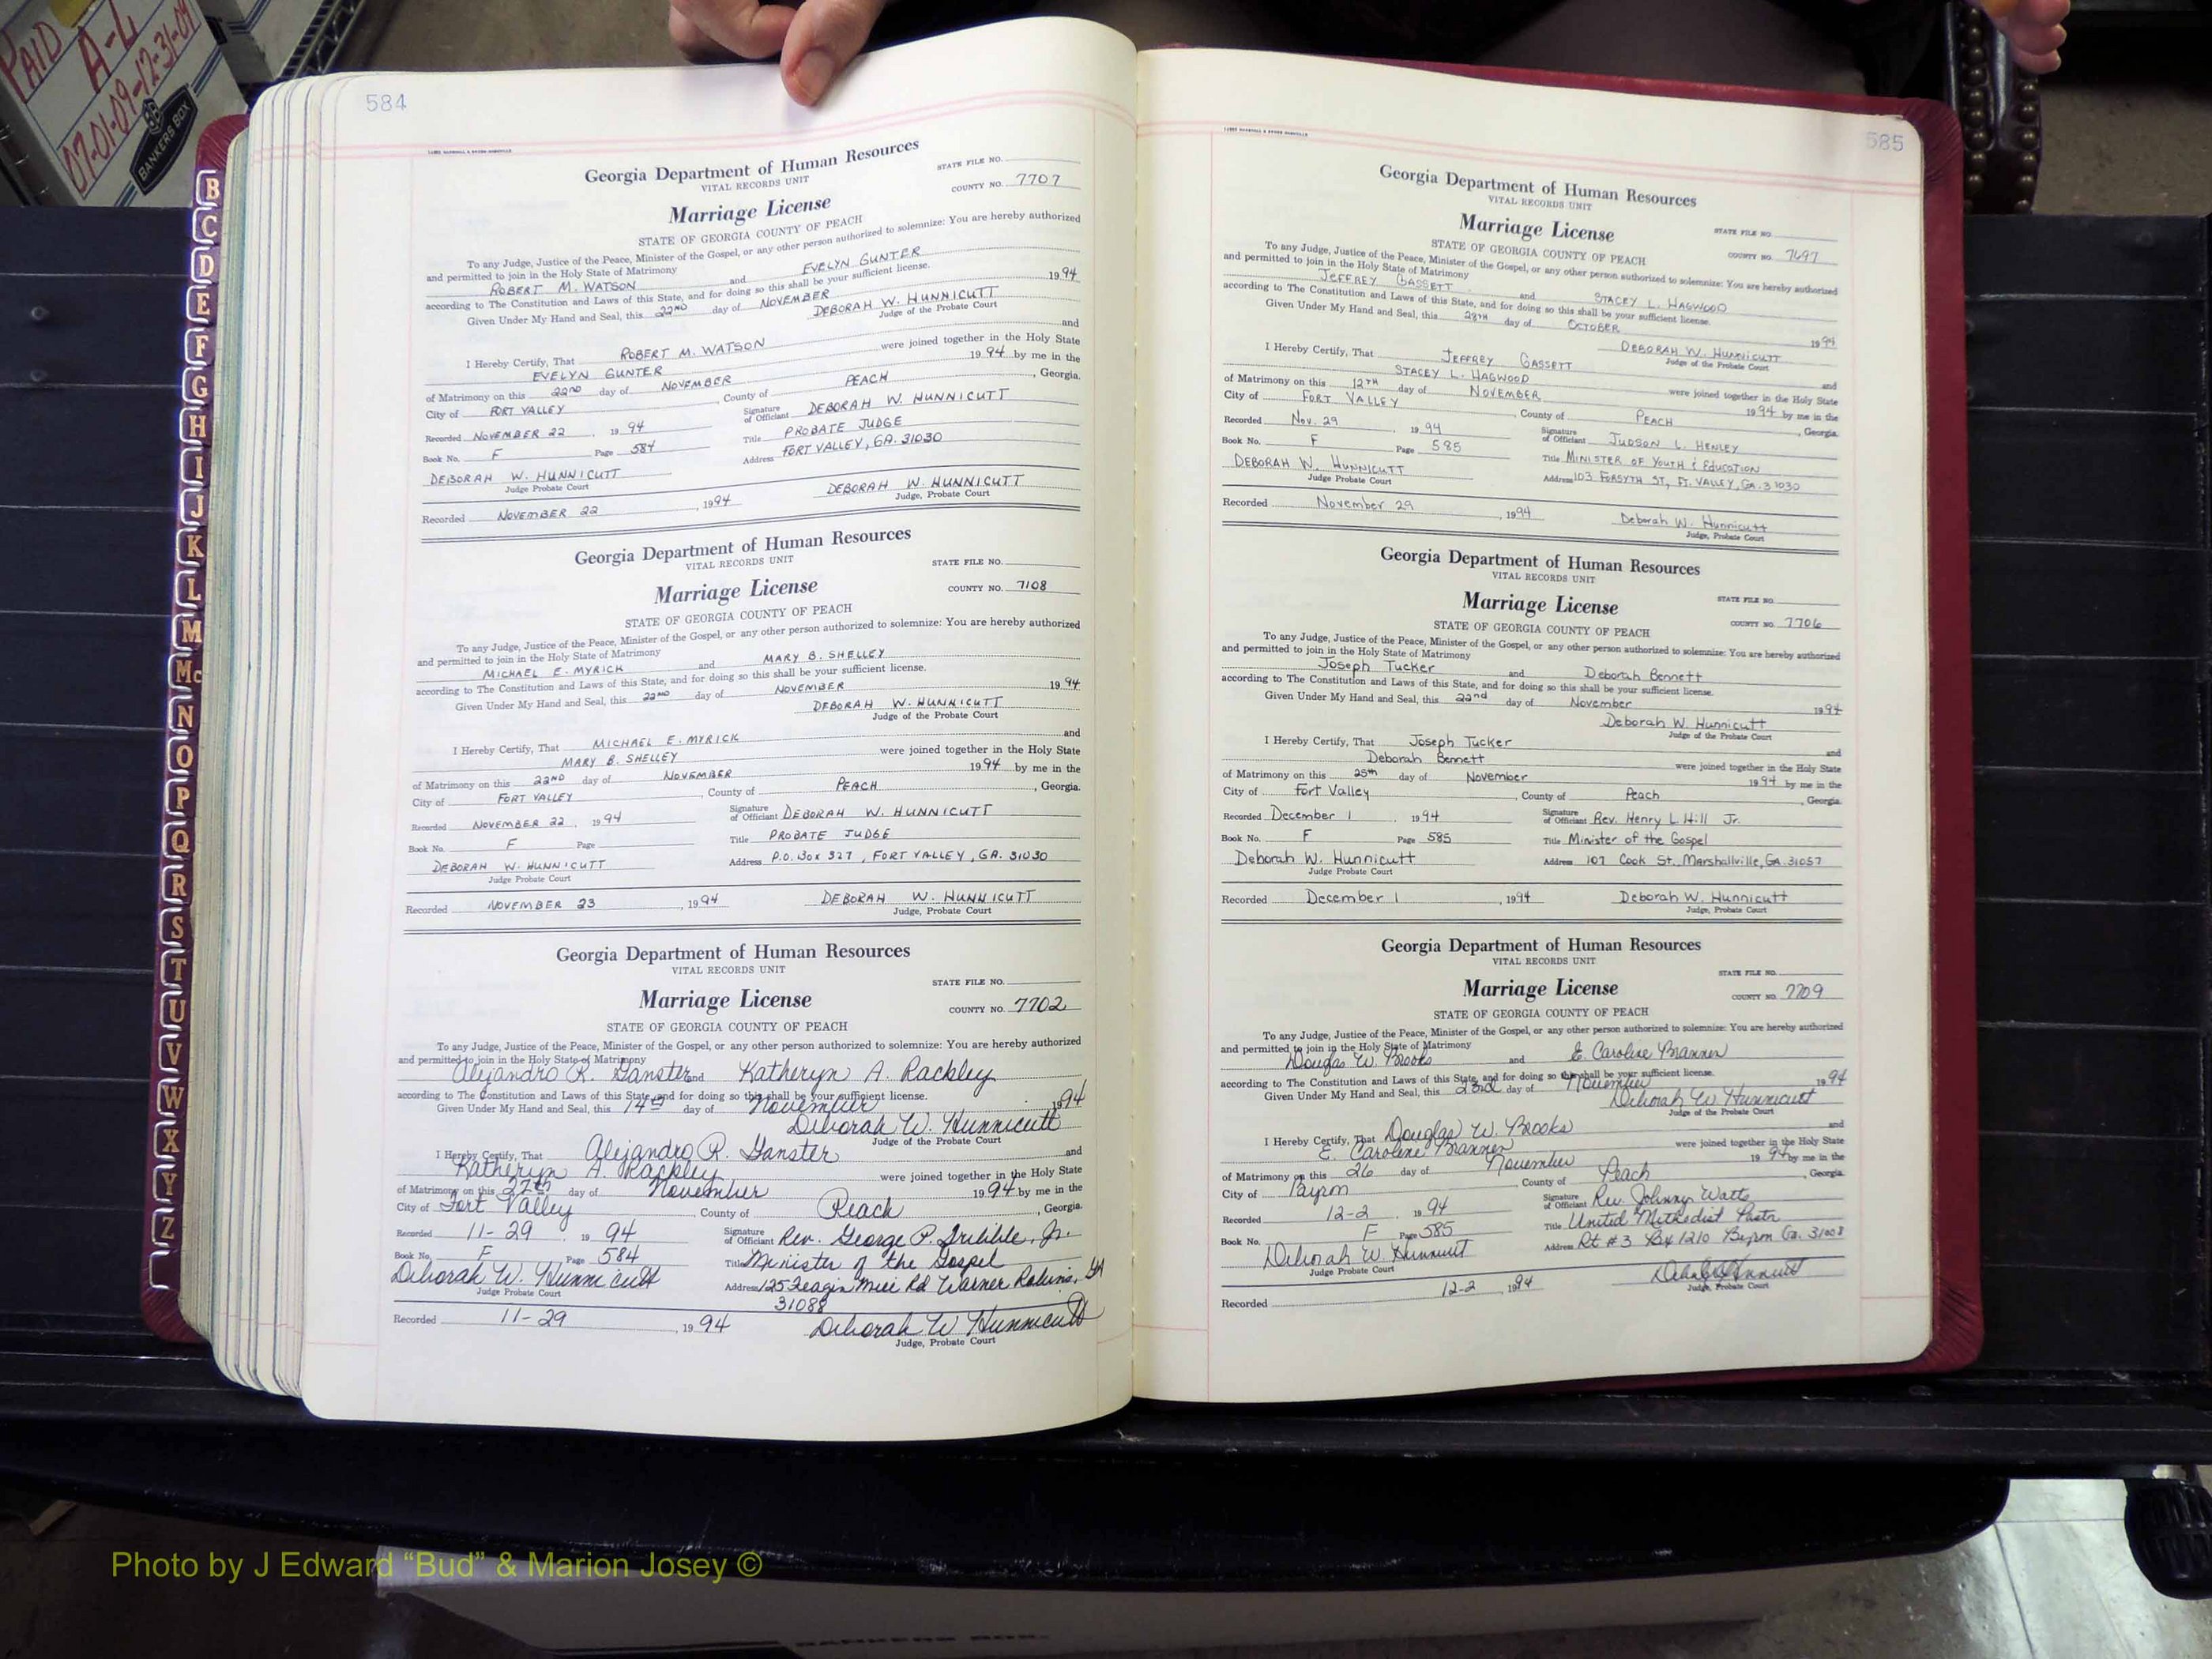 PAID
A-L
07-01-09-12-31-09
BANKERS BOX
B
C
D
E
F
G
H
I
J
K
L
M
Mc
N
O
P
Q
R
S
T
U
V
W
X
Y
Z
584
Georgia Department of Human Resources
VITAL RECORDS UNIT
STATE FILE NO.
COUNTY NO. 7707
Marriage License
STATE OF GEORGIA COUNTY OF PEACH
To any Judge, Justice of the Peace, Minister of the Gospel, or any other person authorized to solemnize: You are hereby authorized
and permitted to join in the Holy State of Matrimony
ROBERT M. WATSON and EVELYN GUNTER
according to The Constitution and Laws of this State, and for doing so this shall be your sufficient license.
Given Under My Hand and Seal, this 22ND day of NOVEMBER 1994
DEBORAH W. HUNNICUTT
Judge of the Probate Court
I Hereby Certify, That ROBERT M. WATSON and
EVELYN GUNTER were joined together in the Holy State
of Matrimony on this 22ND day of NOVEMBER 1994 by me in the
City of FORT VALLEY, County of PEACH, Georgia.
Recorded NOVEMBER 22, 1994 Signature of Officiant DEBORAH W. HUNNICUTT
Book No. F Page 584 Title PROBATE JUDGE
Address FORT VALLEY, GA. 31030
DEBORAH W. HUNNICUTT
Judge Probate Court
Recorded NOVEMBER 22, 1994 DEBORAH W. HUNNICUTT
Judge, Probate Court
Georgia Department of Human Resources
VITAL RECORDS UNIT
STATE FILE NO.
COUNTY NO. 7108
Marriage License
STATE OF GEORGIA COUNTY OF PEACH
To any Judge, Justice of the Peace, Minister of the Gospel, or any other person authorized to solemnize: You are hereby authorized
and permitted to join in the Holy State of Matrimony
MICHAEL E. MYRICK and MARY B. SHELLEY
according to The Constitution and Laws of this State, and for doing so this shall be your sufficient license.
Given Under My Hand and Seal, this 22ND day of NOVEMBER 1994
DEBORAH W. HUNNICUTT
Judge of the Probate Court
I Hereby Certify, That MICHAEL E. MYRICK and
MARY B. SHELLEY were joined together in the Holy State
of Matrimony on this 22ND day of NOVEMBER 1994 by me in the
City of FORT VALLEY, County of PEACH, Georgia.
Recorded NOVEMBER 22, 1994 Signature of Officiant DEBORAH W. HUNNICUTT
Book No. F Page Title PROBATE JUDGE
DEBORAH W. HUNNICUTT Address P.O. BOX 327, FORT VALLEY, GA. 31030
Judge Probate Court
Recorded NOVEMBER 23, 1994 DEBORAH W. HUNNICUTT
Judge, Probate Court
Georgia Department of Human Resources
VITAL RECORDS UNIT
STATE FILE NO.
Marriage License
COUNTY NO. 7702
STATE OF GEORGIA COUNTY OF PEACH
To any Judge, Justice of the Peace, Minister of the Gospel, or any other person authorized to solemnize: You are hereby authorized
and permitted to join in the Holy State of Matrimony
Alejandro R. Ganster and Katheryn A. Rackley
according to The Constitution and Laws of this State, and for doing so this shall be your sufficient license.
Given Under My Hand and Seal, this 14th day of November 1994
Deborah W. Hunnicutt
Judge of the Probate Court
I Hereby Certify, That Alejandro R. Ganster and
Katheryn A. Rackley were joined together in the Holy State
of Matrimony on this 27th day of November 1994 by me in the
City of Fort Valley, County of Peach, Georgia.
Recorded 11-29 1994 Signature of Officiant Rev. George P. Gribble, Jr.
Book No. F Page 584 Title Minister of the Gospel
Deborah W. Hunnicutt Address 125 Feagin Mill Rd Warner Robins, GA
Judge Probate Court 31088
Recorded 11-29, 1994 Deborah W Hunnicutt
Judge, Probate Court
585
Georgia Department of Human Resources
VITAL RECORDS UNIT
Marriage License
STATE FILE NO.
STATE OF GEORGIA COUNTY OF PEACH
COUNTY NO. 7697
To any Judge, Justice of the Peace, Minister of the Gospel, or any other person authorized to solemnize: You are hereby authorized
and permitted to join in the Holy State of Matrimony
JEFFREY GASSETT and STACEY L. HAGWOOD
according to The Constitution and Laws of this State, and for doing so this shall be your sufficient license.
Given Under My Hand and Seal, this 28TH day of OCTOBER 1994
DEBORAH W. HUNNICUTT
Judge of the Probate Court
I Hereby Certify, That JEFFREY GASSETT and
STACEY L. HAGWOOD were joined together in the Holy State
of Matrimony on this 12TH day of NOVEMBER 1994 by me in the
City of FORT VALLEY, County of PEACH, Georgia.
Recorded Nov. 29, 1994 Signature of Officiant JUDSON L. HENLEY
Book No. F Page 585 Title MINISTER OF YOUTH & EDUCATION
DEBORAH W. HUNNICUTT Address 103 FORSYTH ST, FT. VALLEY, GA. 31030
Judge Probate Court
Recorded November 29, 1994 Deborah W. Hunnicutt
Judge, Probate Court
Georgia Department of Human Resources
VITAL RECORDS UNIT
Marriage License
STATE FILE NO.
STATE OF GEORGIA COUNTY OF PEACH
COUNTY NO. 7706
To any Judge, Justice of the Peace, Minister of the Gospel, or any other person authorized to solemnize: You are hereby authorized
and permitted to join in the Holy State of Matrimony
Joseph Tucker and Deborah Bennett
according to The Constitution and Laws of this State, and for doing so this shall be your sufficient license.
Given Under My Hand and Seal, this 22nd day of November 1994
Deborah W. Hunnicutt
Judge of the Probate Court
I Hereby Certify, That Joseph Tucker and
Deborah Bennett were joined together in the Holy State
of Matrimony on this 25th day of November 1994 by me in the
City of Fort Valley, County of Peach, Georgia.
Recorded December 1, 1994 Signature of Officiant Rev. Henry L Hill Jr.
Book No. F Page 585 Title Minister of the Gospel
Deborah W. Hunnicutt Address 107 Cook St., Marshallville, GA. 31057
Judge Probate Court
Recorded December 1, 1994 Deborah W. Hunnicutt
Judge, Probate Court
Georgia Department of Human Resources
VITAL RECORDS UNIT
STATE FILE NO.
Marriage License
COUNTY NO. 7709
STATE OF GEORGIA COUNTY OF PEACH
To any Judge, Justice of the Peace, Minister of the Gospel, or any other person authorized to solemnize: You are hereby authorized
and permitted to join in the Holy State of Matrimony
Douglas W. Brooks and E. Caroline Brannen
according to The Constitution and Laws of this State, and for doing so this shall be your sufficient license.
Given Under My Hand and Seal, this 23rd day of November 1994
Deborah W Hunnicutt
Judge of the Probate Court
I Hereby Certify, That Douglas W. Brooks and
E. Caroline Brannen were joined together in the Holy State
of Matrimony on this 26 day of November 1994 by me in the
City of Byron, County of Peach, Georgia.
Recorded 12-2, 1994 Signature of Officiant Rev. Johnny Watts
Book No. F Page 585 Title United Methodist Pastor
Deborah W. Hunnicutt Address Rt #3 Bx 1210 Byron Ga. 31008
Judge Probate Court
Recorded 12-2, 1994 Deborah W Hunnicutt
Judge, Probate Court
Photo by J Edward “Bud” & Marion Josey ©